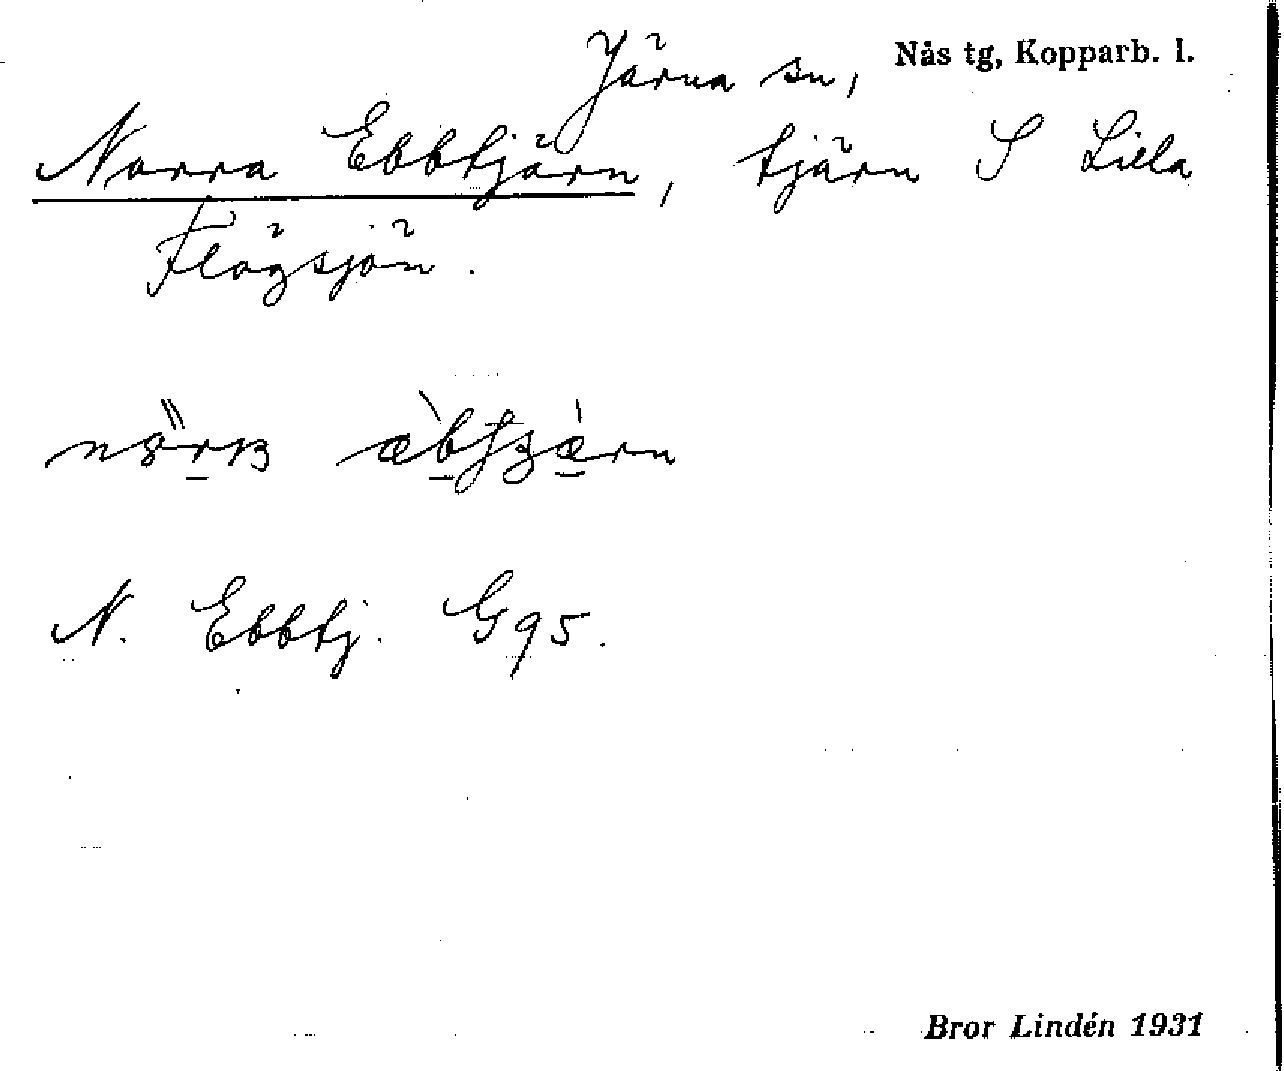 Järna sn, Nås tg, Kopparb. l.
Norra Ebbtjärn, tjärn S Lilla
Flögsjön.
N. Ebbtj. G95.
Bror Lindén 1931